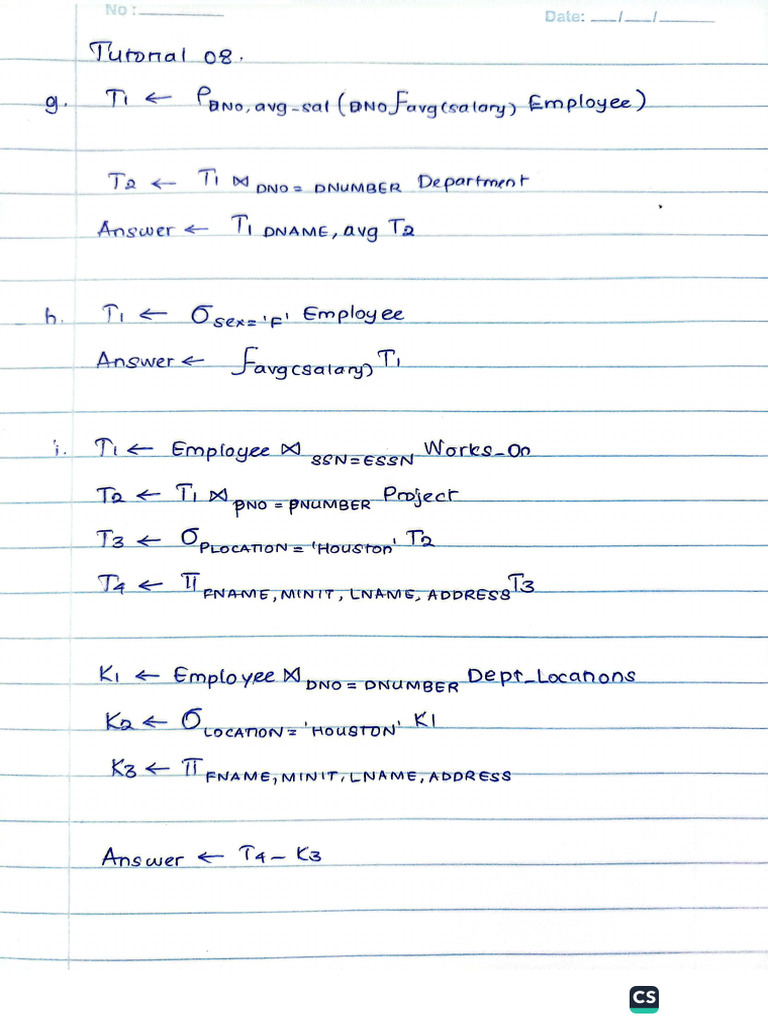 No :
Date: __/__/____
Tutorial 08.
g. T1 ← ρ DNO, avg-sal (DNO ℱ avg(salary) Employee)
T2 ← T1 ⋈ DNO = DNUMBER Department
Answer ← π DNAME, avg T2
h. T1 ← σ sex='F' Employee
Answer ← ℱ avg(salary) T1
i. T1 ← Employee ⋈ SSN=ESSN Works_On
T2 ← T1 ⋈ PNO = PNUMBER Project
T3 ← σ PLOCATION = 'Houston' T2
T4 ← π FNAME, MINIT, LNAME, ADDRESS T3
K1 ← Employee ⋈ DNO = DNUMBER Dept_Locations
K2 ← σ LOCATION = 'HOUSTON' K1
K3 ← π FNAME, MINIT, LNAME, ADDRESS
Answer ← T4 – K3
CS